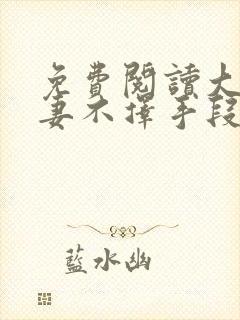 免費閱讀大
妻不擇手段
藍水幽